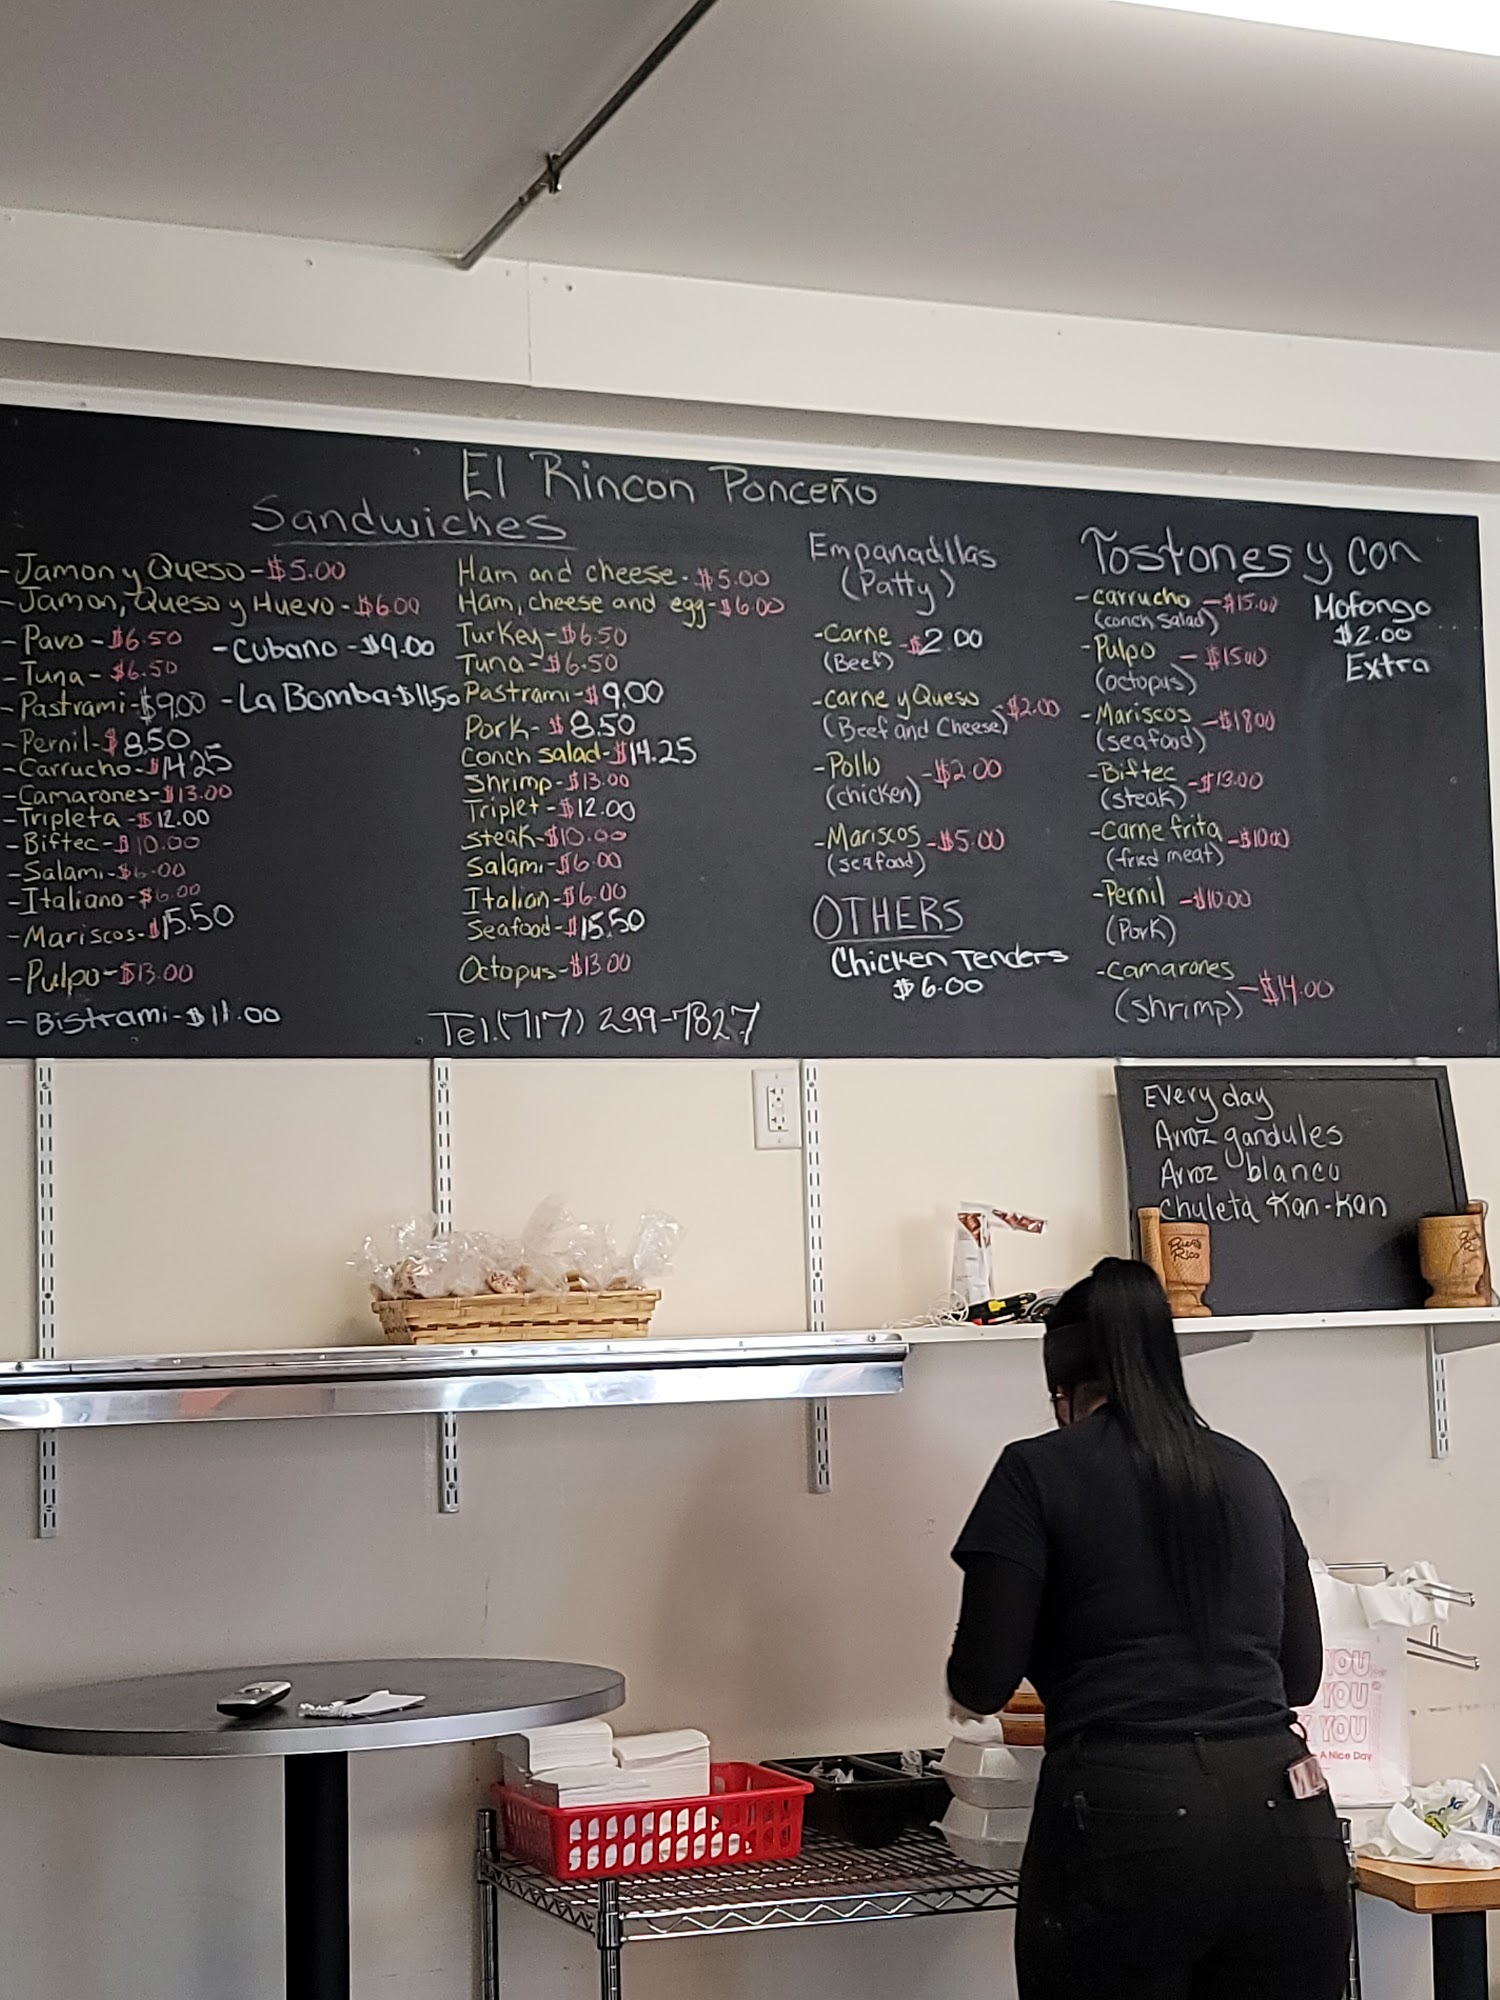 El Rincon Ponceño
Sandwiches
-Jamon y Queso-$5.00
-Jamon, Queso y Huevo-$6.00
-Pavo-$6.50
-Tuna-$6.50
-Pastrami-$9.00
-Pernil-$8.50
-Carrucho-$14.25
-Camarones-$13.00
-Tripleta-$12.00
-Biftec-$10.00
-Salami-$6.00
-Italiano-$6.00
-Mariscos-$15.50
-Pulpo-$13.00
-Bistrami-$11.00
-Cubano-$9.00
-La Bomba-$11.50
Ham and cheese-$5.00
Ham, cheese and egg-$6.00
Turkey-$6.50
Tuna-$6.50
Pastrami-$9.00
Pork-$8.50
Conch salad-$14.25
Shrimp-$13.00
Triplet-$12.00
Steak-$10.00
Salami-$6.00
Italian-$6.00
Seafood-$15.50
Octopus-$13.00
Tel.(717) 299-7827
Empanadillas
(Patty)
-Carne -$2.00
(Beef)
-Carne y Queso
(Beef and Cheese) -$2.00
-Pollo -$2.00
(chicken)
-Mariscos -$5.00
(seafood)
OTHERS
Chicken Tenders
$6.00
Tostones y con
-Carrucho -$15.00
(conch salad)
-Pulpo -$15.00
(octopus)
-Mariscos -$18.00
(seafood)
-Biftec -$13.00
(steak)
-Carne frita -$10.00
(fried meat)
-Pernil -$10.00
(Pork)
-Camarones -$14.00
(shrimp)
Mofongo
$2.00
Extra
Every day
Arroz gandules
Arroz blanco
Chuleta Kan-Kan
Puerto
Rico
YOU
YOU
K YOU
A Nice Day